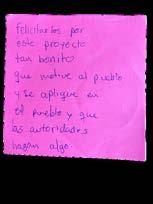 felicitarlos por
este proyecto
tan bonito
que motive al pueblo
y se aplique en
el pueblo y que
las autoridades
hagan algo.